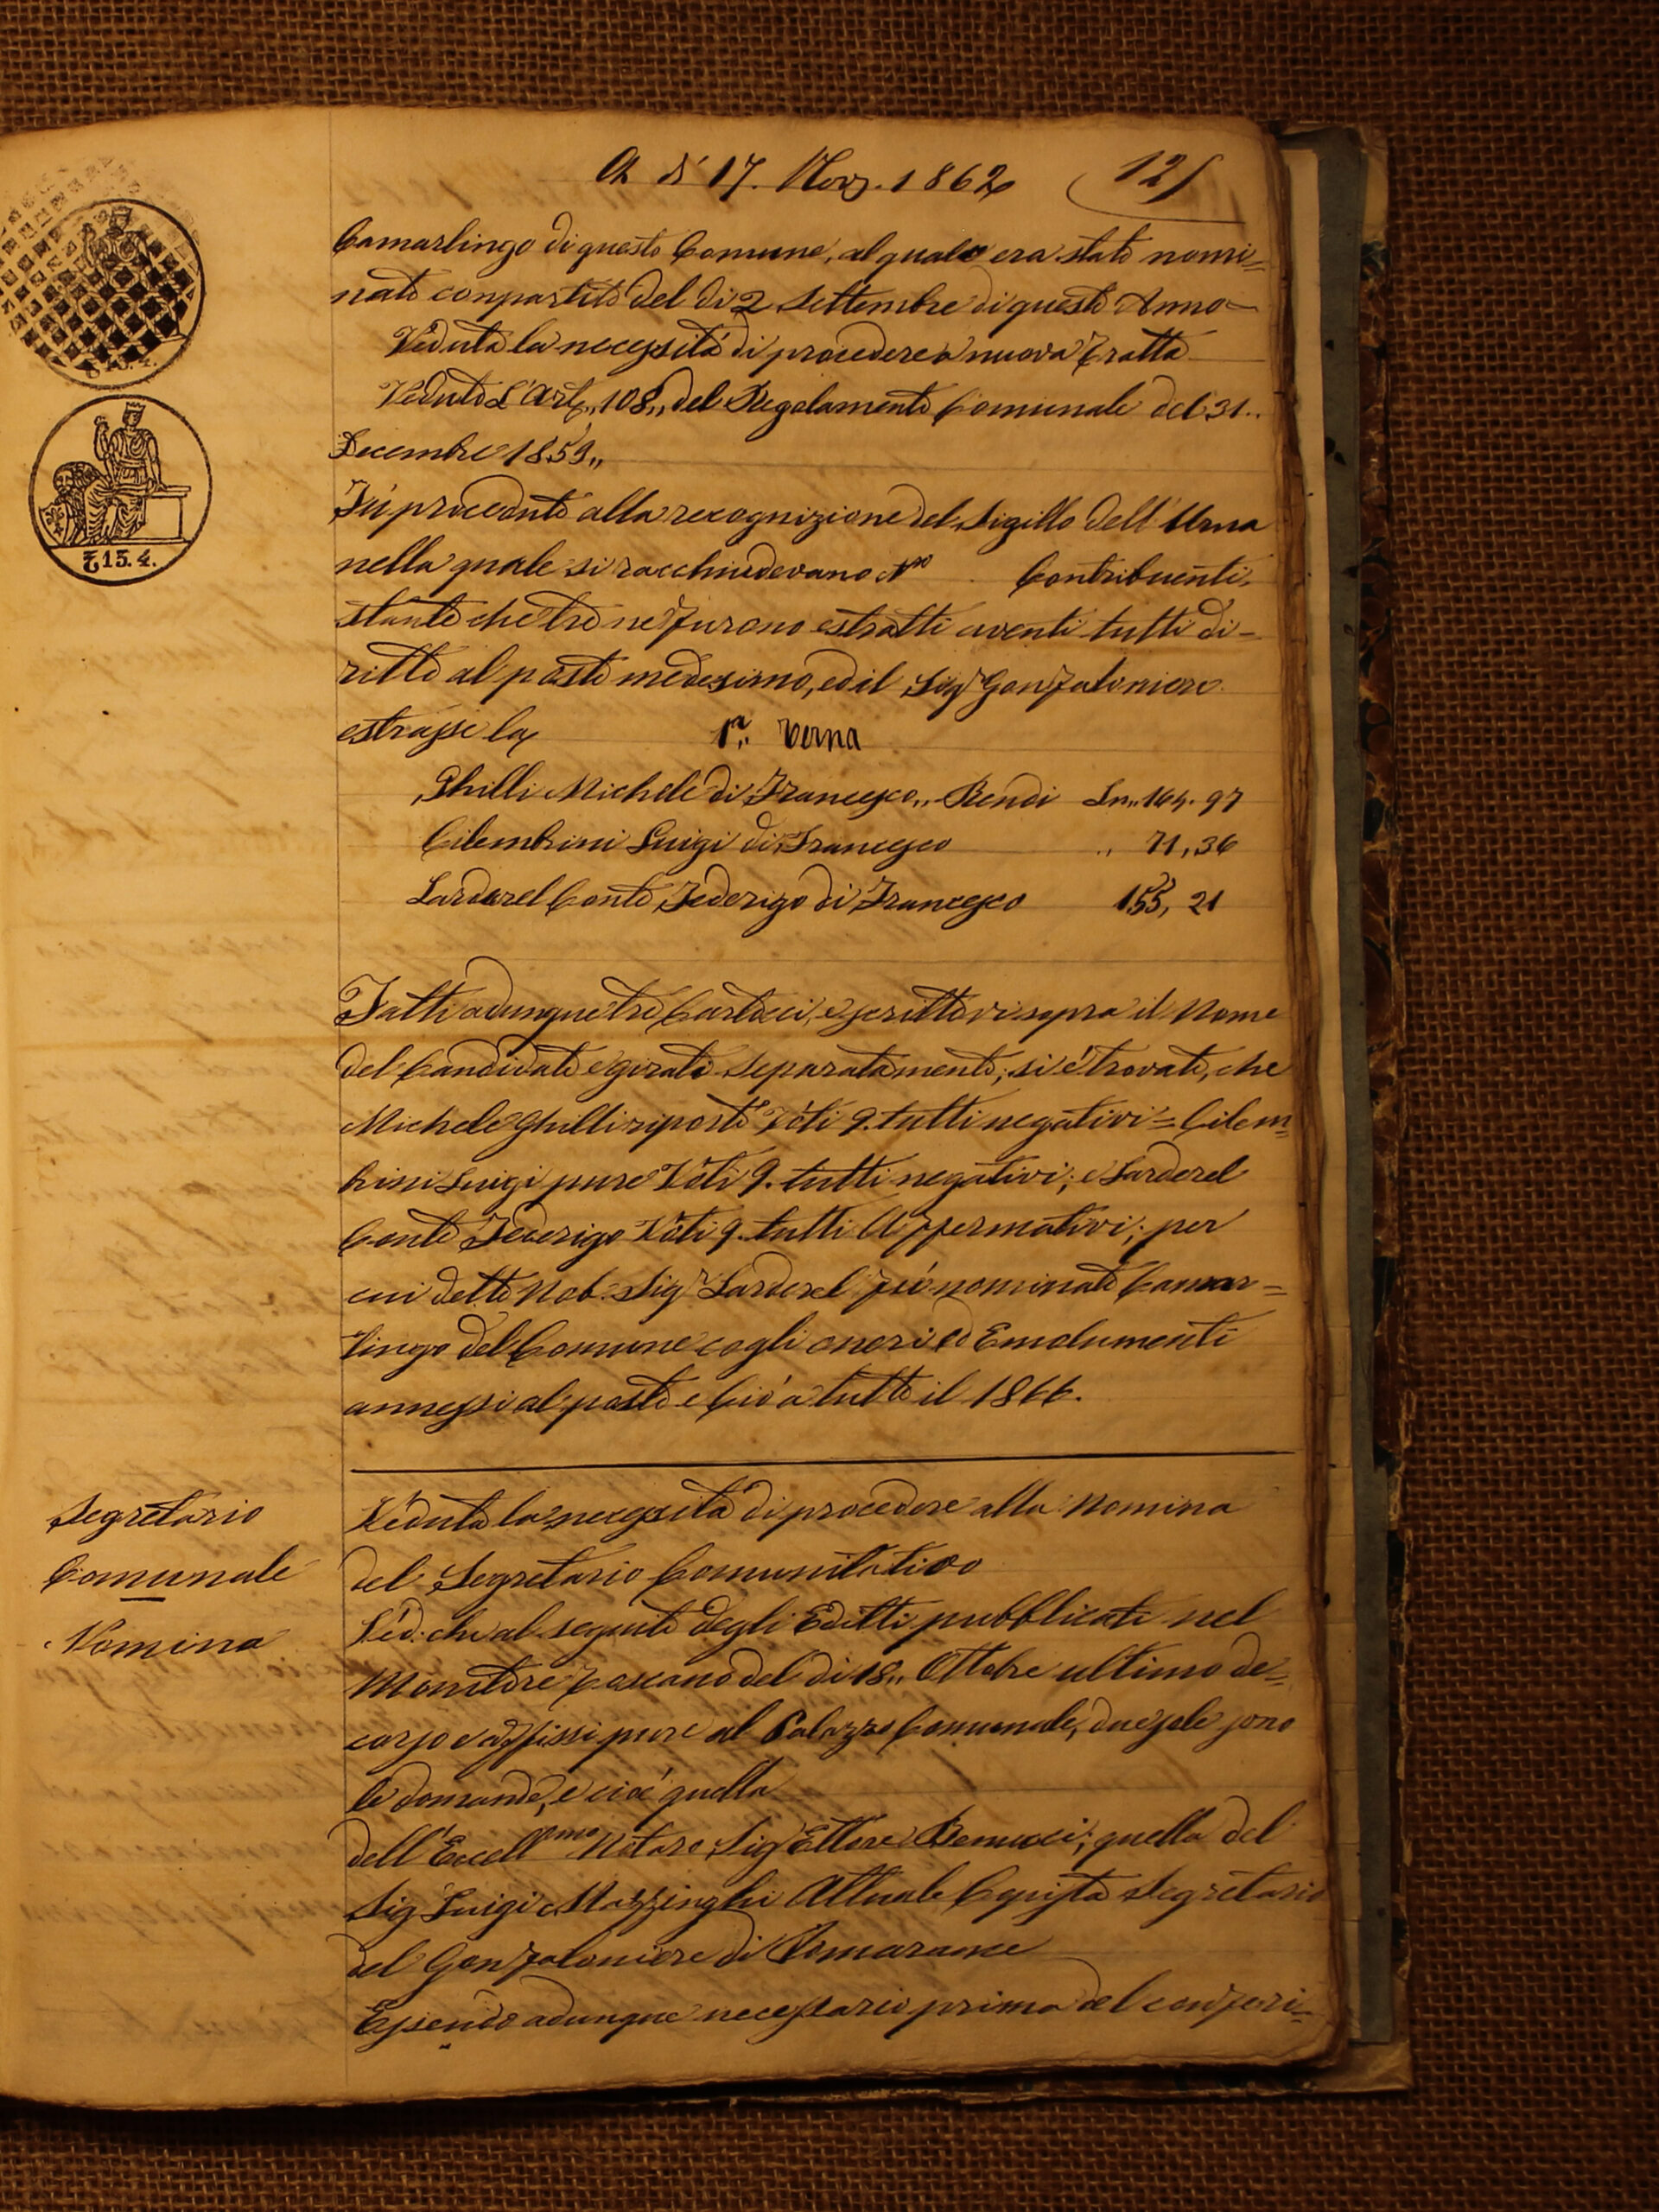 A dì 17. Nov. 1862
121
Camarlingo di questo Comune, al quale era stato nomi=
nato con partito del dì 2 Settembre di questo Anno=
Veduta la necessità di procedere a nuova Tratta
Veduto L'Art. „108„ del Regolamento Comunale del 31..
Decembre 1859„
Fù proceduto alla recognizione del Sigillo dell'Urna
nella quale si racchiudevano N.ro Contribuenti,
stante che tre ne furono estratti aventi tutti di=
ritto al posto medesimo, ed il Sigr Gonfaloniere
estrasse la 1.a Terna
Ghilli Michele di Francesco„ Rendi Ln„ 164. 97
Cilembrini Luigi di Francesco „ 71, 36
Larderel Conte Federigo di Francesco 155, 21
Fatti adunque tre Cartocci, e scrittovi sopra il Nome
del Candidato e girati separatamente, si è trovato, che
Michele Ghilli riportò Voti 9. tutti negativi = Cilem=
brini Luigi pure Voti 9. tutti negativi; e Larderel
Conte Federigo Voti 9. tutti Affermativi; per
cui detto Nob. Sigr Larderel fù nominato Camar=
lingo del Comune cogli oneri ed Emolumenti
annessi al posto e Ciò a tutto il 1866.
Segretario
Comunale
Nomina
Veduta la necessità di procedere alla Nomina
del Segretario Comunitativo
Ved: che al seguito degli Editti pubblicati nel
Monitore Toscano del dì 18„ Ottobre ultimo de=
corso e affissi pure al Palazzo Comunale, due sole sono
le domande, e cioè quella
dell'Eccellmo Notaro Sigr Ettore Benucci; quella del
Sig Luigi Mazzinghi Attuale Copista Segretario
del Gonfaloniere di Pomarance
Essendo adunque necessario prima del conferi=
₤ 15. 4.